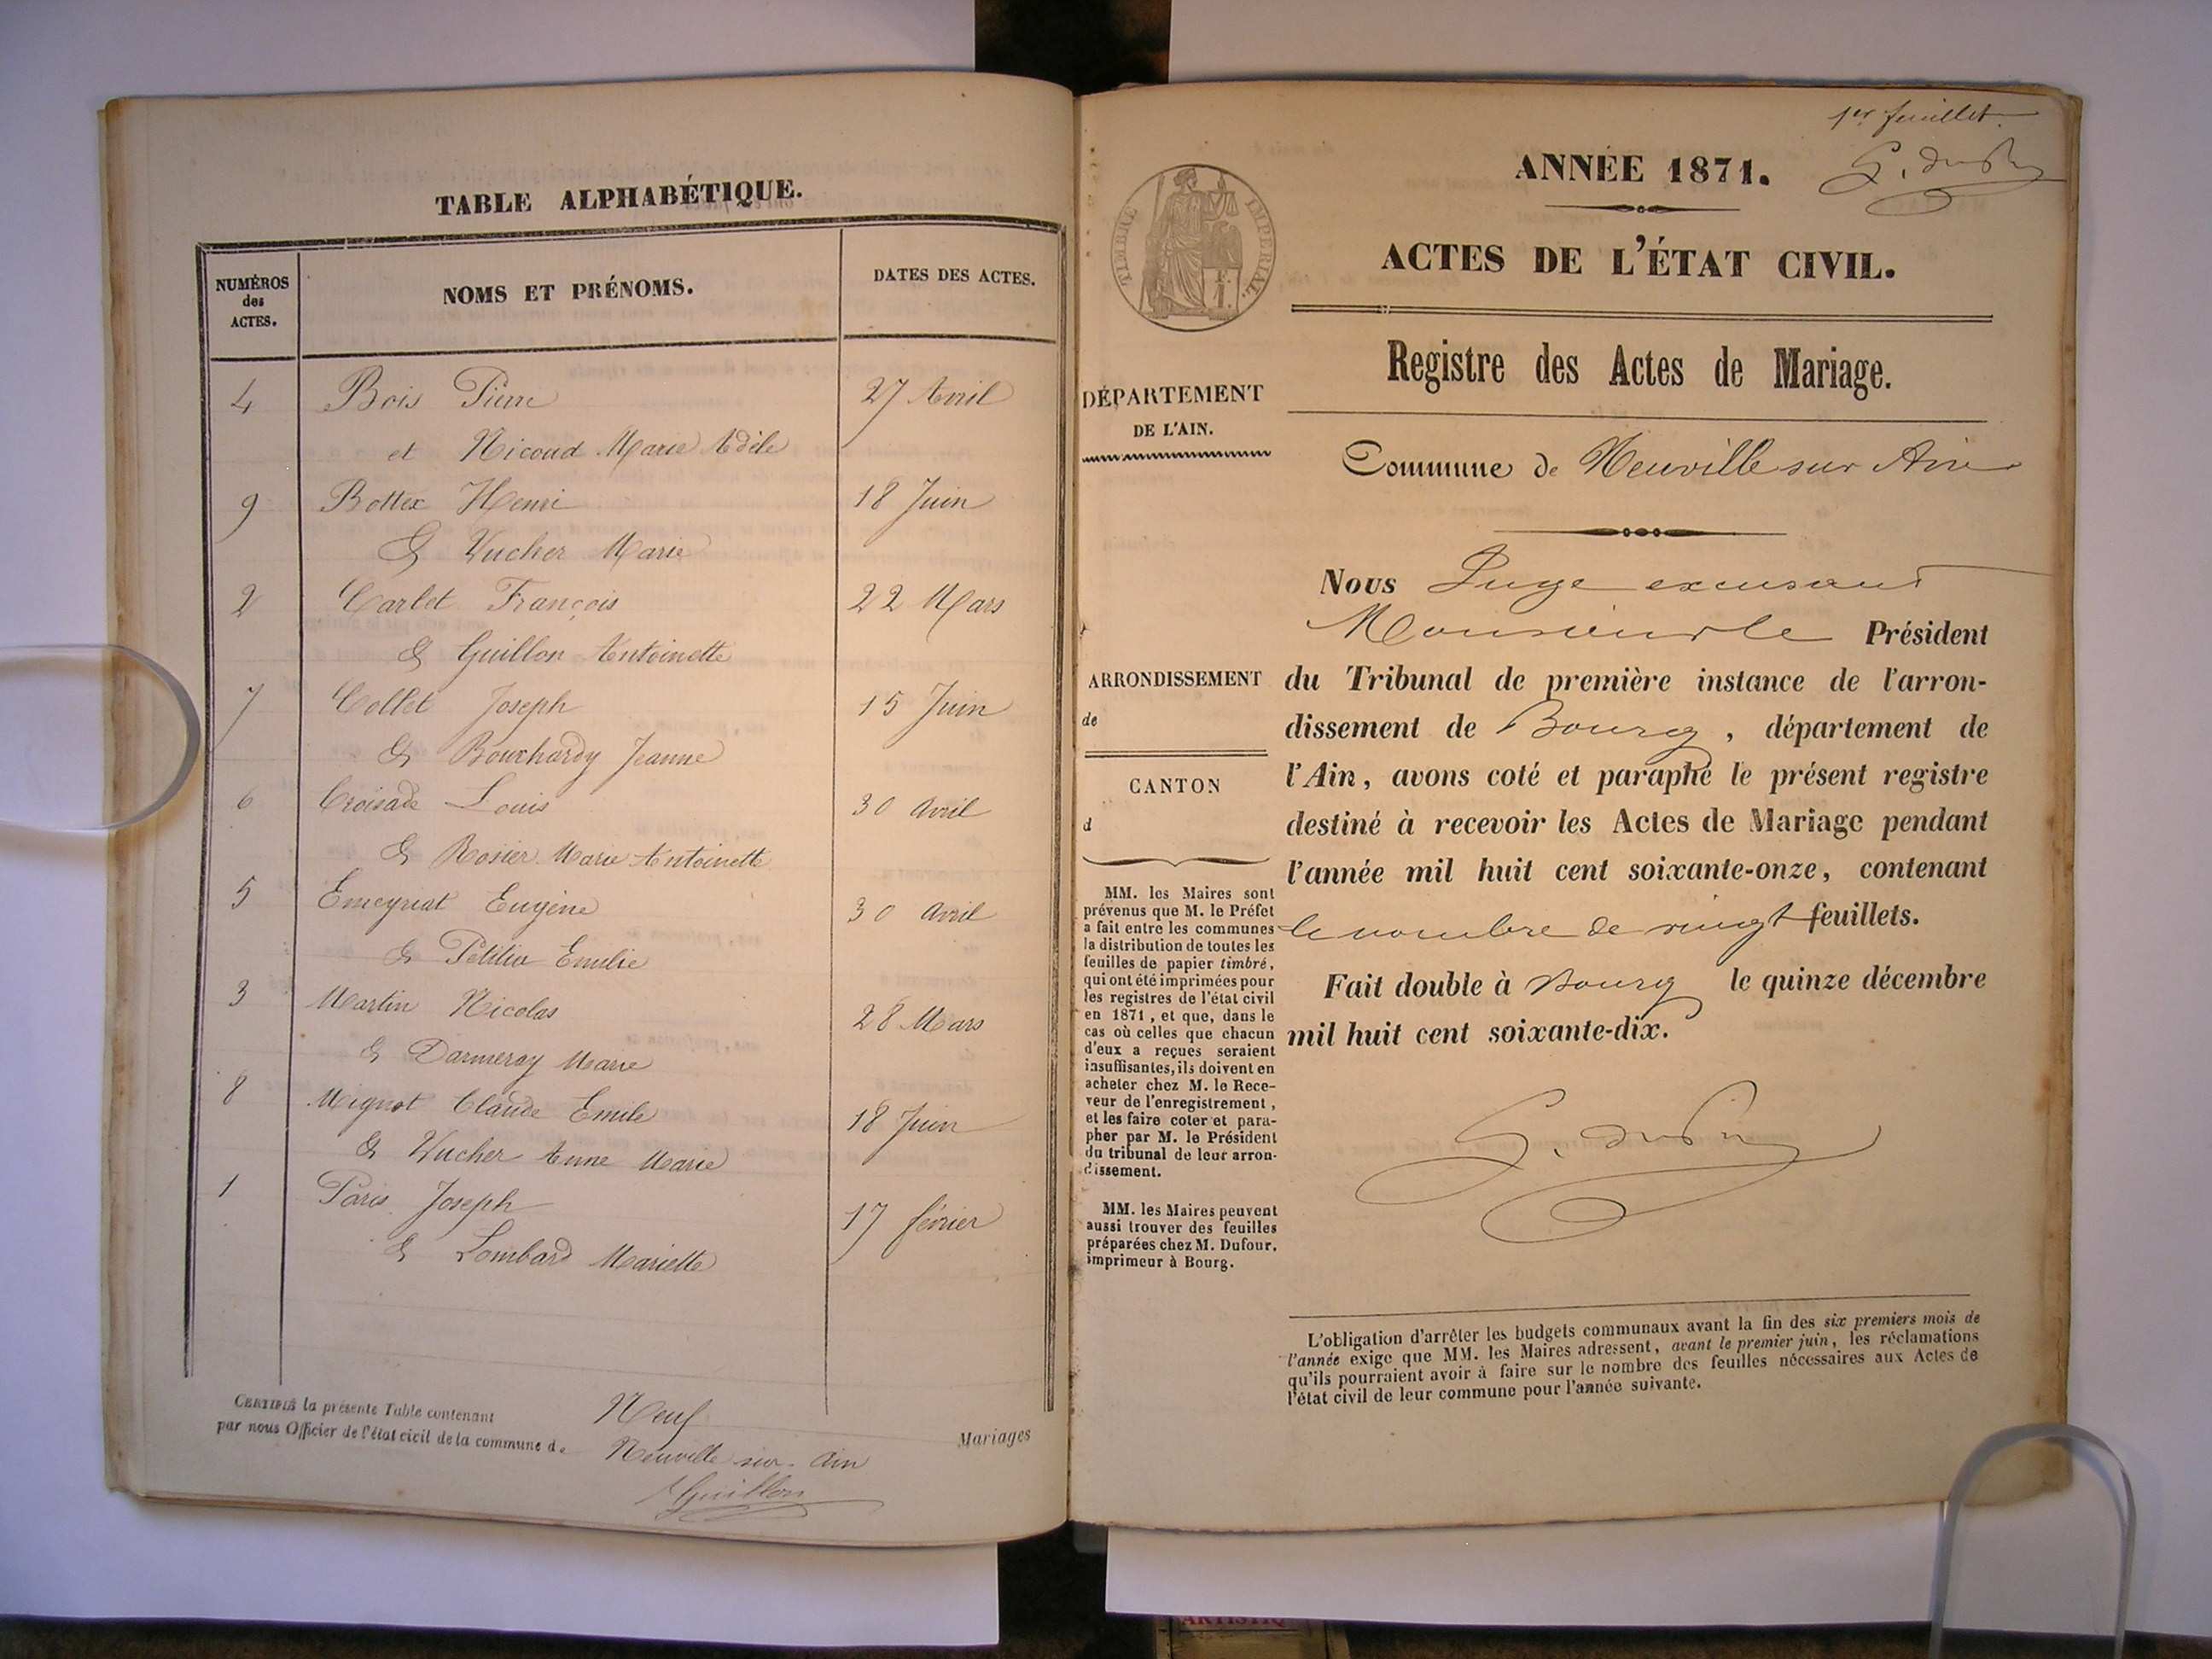 TABLE ALPHABÉTIQUE.
NUMÉROS des ACTES.
NOMS ET PRÉNOMS.
DATES DES ACTES.
4 Bois Pierre 27 Avril
et Nicoud Marie Adèle
9 Bottex Henri 18 Juin
& Vucher Marie
2 Carlet François 22 Mars
& Guillon Antoinette
7 Collet Joseph 15 Juin
& Bouchardy Jeanne
6 Croisade Louis 30 Avril
& Rosier Marie Antoinette
5 Emeyriat Eugène 30 Avril
& Emilie
3 Martin Nicolas 28 Mars
& Darmeray Marie
8 Mignot Claude Emile 18 Juin
& Vucher Anne Marie
1 Paris Joseph 17 février
& Lombard Mariette
CERTIFIÉ la présente Table contenant Neuf Mariages
par nous Officier de l'état civil de la commune de Neuville sur Ain
Guillon
1er feuillet
TIMBRE IMPERIAL.
ANNÉE 1871.
ACTES DE L'ÉTAT CIVIL.
Registre des Actes de Mariage.
DÉPARTEMENT
DE L'AIN.
Commune de Neuville sur Ain
ARRONDISSEMENT
de
CANTON
d
MM. les Maires sont
prévenus que M. le Préfet
a fait entre les communes
la distribution de toutes les
feuilles de papier timbré,
qui ont été imprimées pour
les registres de l'état civil
en 1871, et que, dans le
cas où celles que chacun
d'eux a reçues seraient
insuffisantes, ils doivent en
acheter chez M. le Rece-
veur de l'enregistrement,
et les faire coter et para-
pher par M. le Président
du tribunal de leur arron-
dissement.
MM. les Maires peuvent
aussi trouver des feuilles
préparées chez M. Dufour,
imprimeur à Bourg.
Nous Juge excusant
Monsieur le Président
du Tribunal de première instance de l'arron-
dissement de Bourg, département de
l'Ain, avons coté et paraphé le présent registre
destiné à recevoir les Actes de Mariage pendant
l'année mil huit cent soixante-onze, contenant
le nombre de vingt feuillets.
Fait double à Bourg le quinze décembre
mil huit cent soixante-dix.
L'obligation d'arrêter les budgets communaux avant la fin des six premiers mois de
l'année exige que MM. les Maires adressent, avant le premier juin, les réclamations
qu'ils pourraient avoir à faire sur le nombre des feuilles nécessaires aux Actes de
l'état civil de leur commune pour l'année suivante.